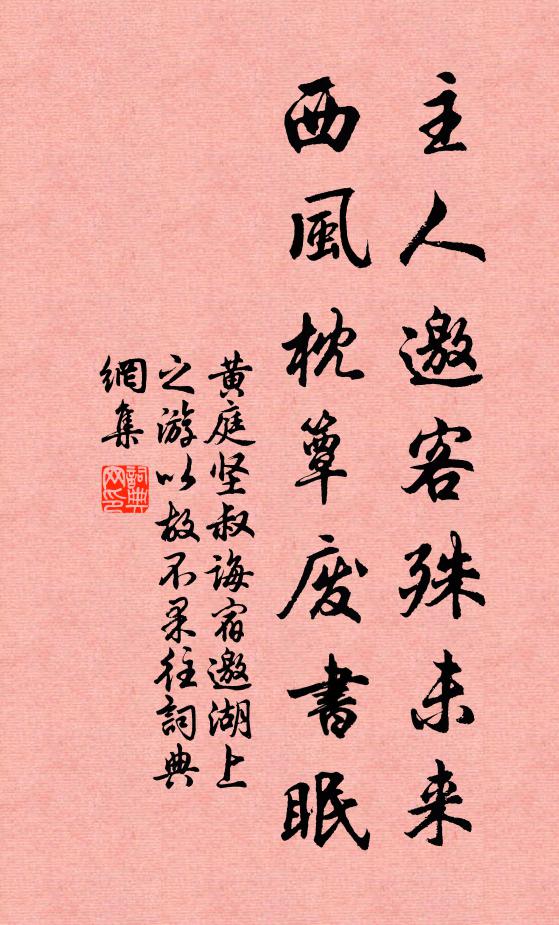 主人邀客殊未来
西風枕簟废書眠
黄庭坚叔诲宿邀湖上
之游以故不果往詞典
網集
詞典
网印